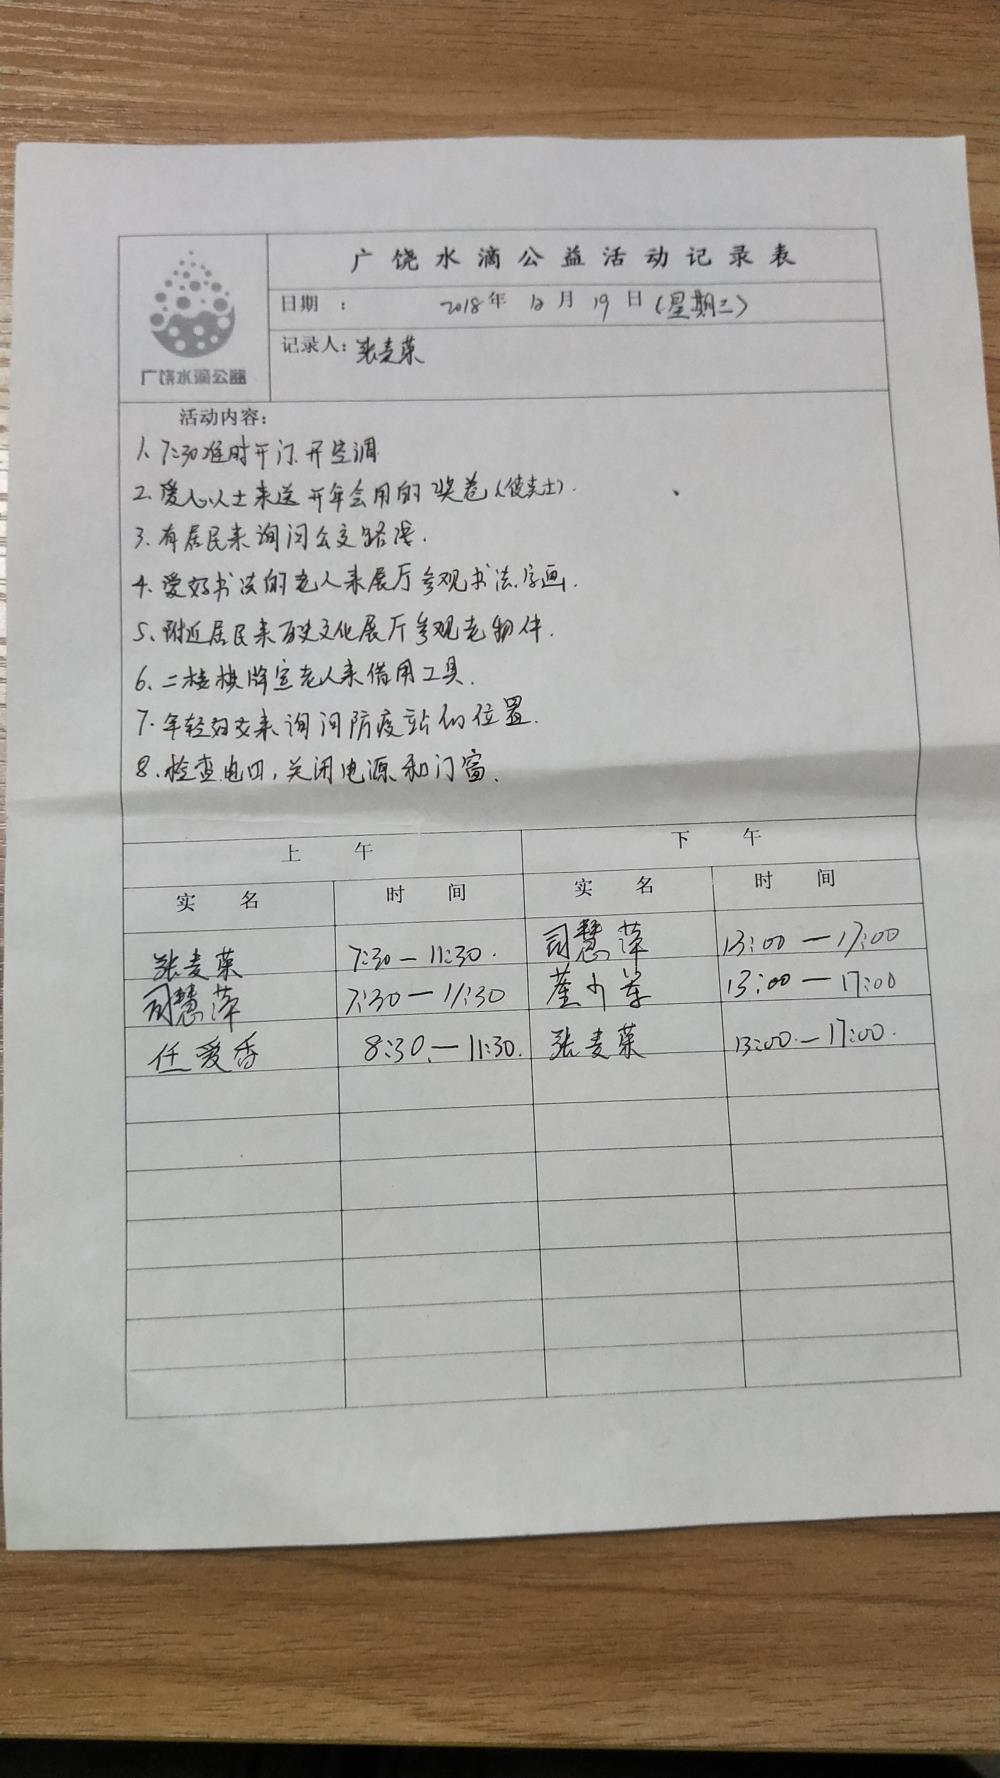 广饶水滴公益活动记录表
日期 : 2018年 12月 19日(星期三)
广饶水滴公益
记录人: 张麦荣
活动内容:
1、7:30准时开门、开空调
2、爱心人士来送开年会用的奖卷
3、有居民来询问公交路线.
4、爱好书法的老人来展厅参观书法字画.
5、附近居民来历史文化展厅参观老物件.
6、二楼棋牌室老人来借用工具.
7、年轻妇女来询问防疫站的位置.
8、检查电四,关闭电源和门窗.
上 午 下 午
实 名 时 间 实 名 时 间
张麦荣 7:30—11:30. 司慧萍 13:00—17:00
司慧萍 7:30—11:30 13:00—17:00
任爱香 8:30—11:30. 张麦荣 13:00—17:00.